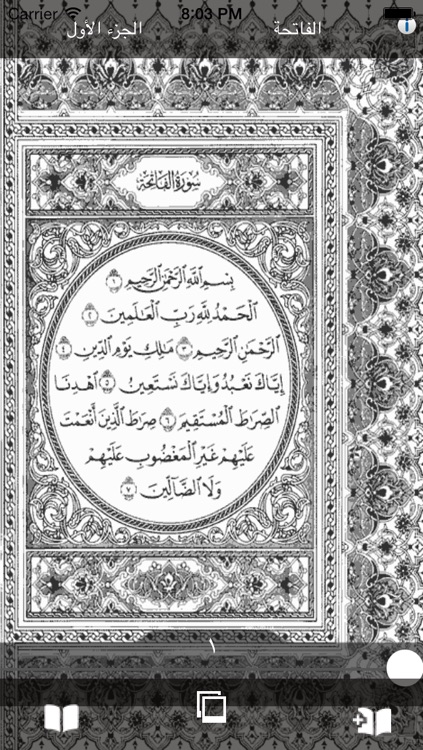 Carrier 8:03 PM
الفاتحة الجزء الأول
سُورَةُ الفَاتِحَةِ
بِسْمِ ٱللَّهِ ٱلرَّحْمَٰنِ ٱلرَّحِيمِ ١
ٱلْحَمْدُ لِلَّهِ رَبِّ ٱلْعَٰلَمِينَ ٢
ٱلرَّحْمَٰنِ ٱلرَّحِيمِ ٣ مَٰلِكِ يَوْمِ ٱلدِّينِ ٤
إِيَّاكَ نَعْبُدُ وَإِيَّاكَ نَسْتَعِينُ ٥ ٱهْدِنَا
ٱلصِّرَٰطَ ٱلْمُسْتَقِيمَ ٦ صِرَٰطَ ٱلَّذِينَ أَنْعَمْتَ
عَلَيْهِمْ غَيْرِ ٱلْمَغْضُوبِ عَلَيْهِمْ
وَلَا ٱلضَّآلِّينَ ٧
١